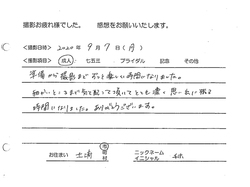 撮影お疲れ様でした。 感想をお願いいたします。
<撮影日時> 2020年 9月 7日 (月)
<撮影項目> 成人 七五三 ブライダル 記念 その他
準備から撮影までずっと楽しい時間になりました。
細かいところまで気を配って頂いてとても濃く思い出に残る
時間になりました。ありがとうございます。
お住まい 土浦 市 町 村 ニックネーム イニシャル